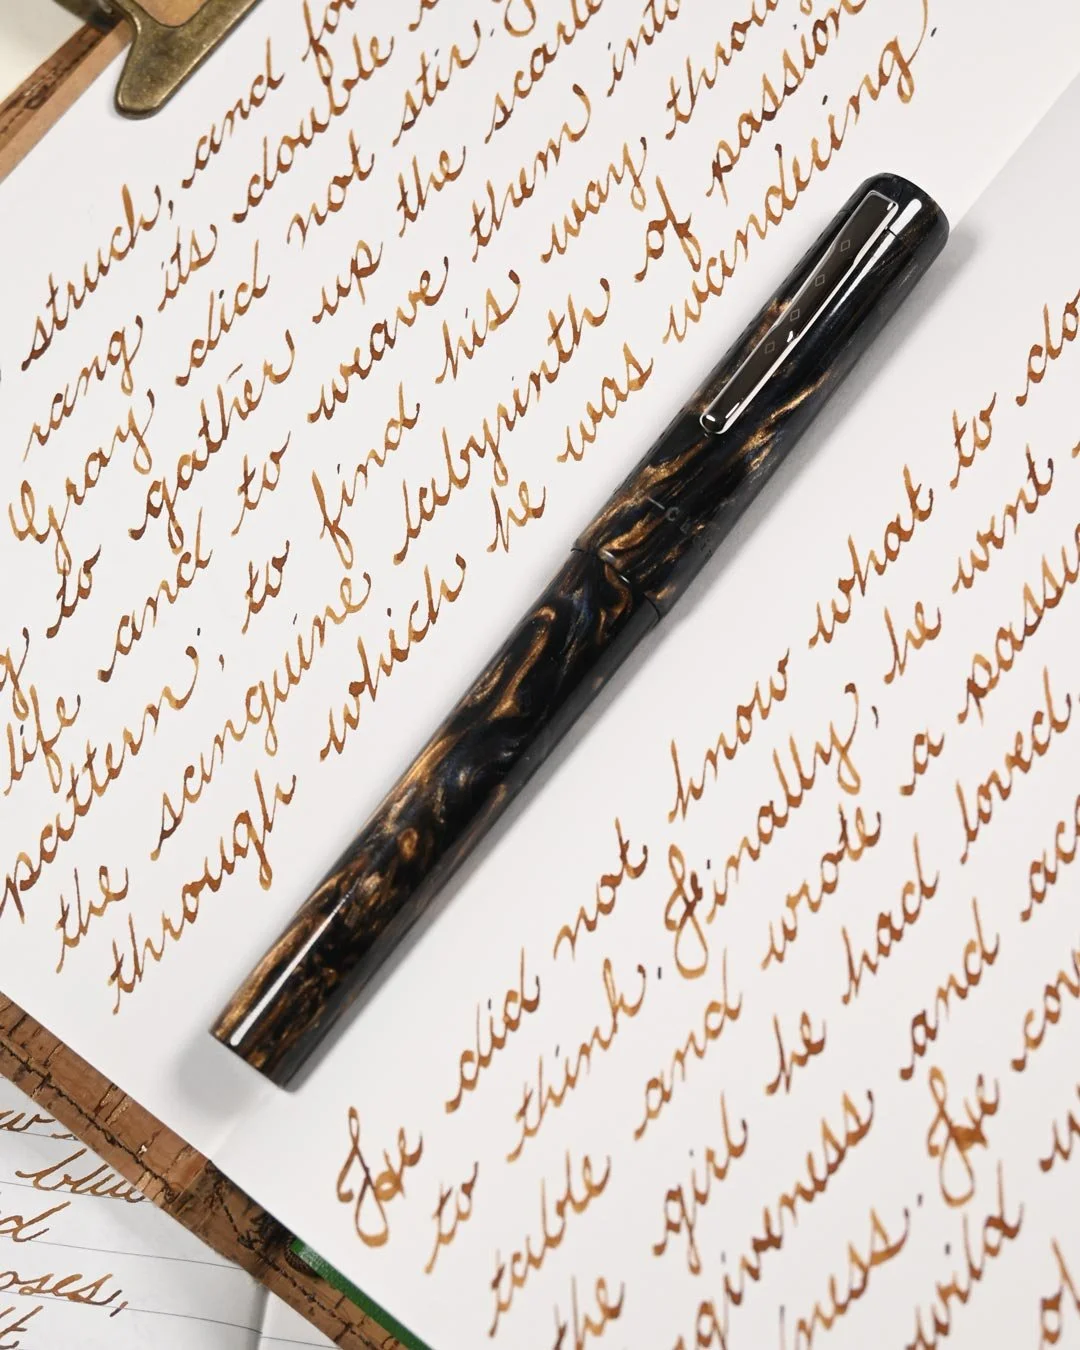 struck, and
rang its double
Gray, did not stir.
to gather up the scarle
life and to weave them into
pattern; to find his way throu
the sanguine labyrinth of passion
through which he was wandering.
He did not know what to do
to think. Finally, he went
table and wrote a passio
the girl he had loved,
giveness and acc
ness. He cov
wild
of
blue
oses,